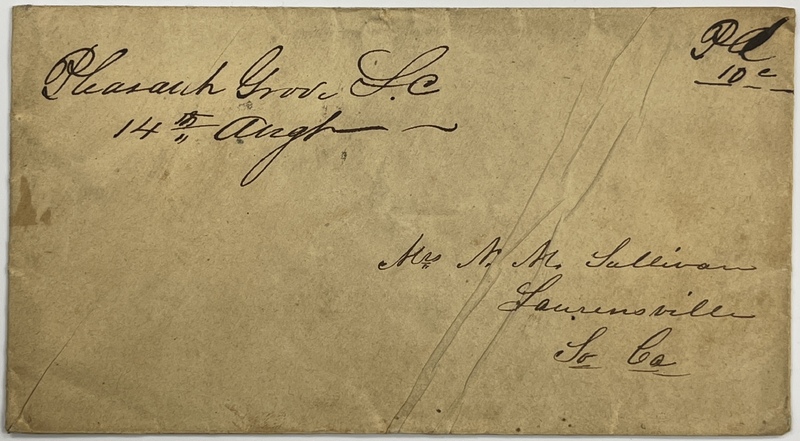 Pleasant Grove S.C
14th Augt
Pd
10c
Mrs N. M. Sullivan
Laurensville
So Ca